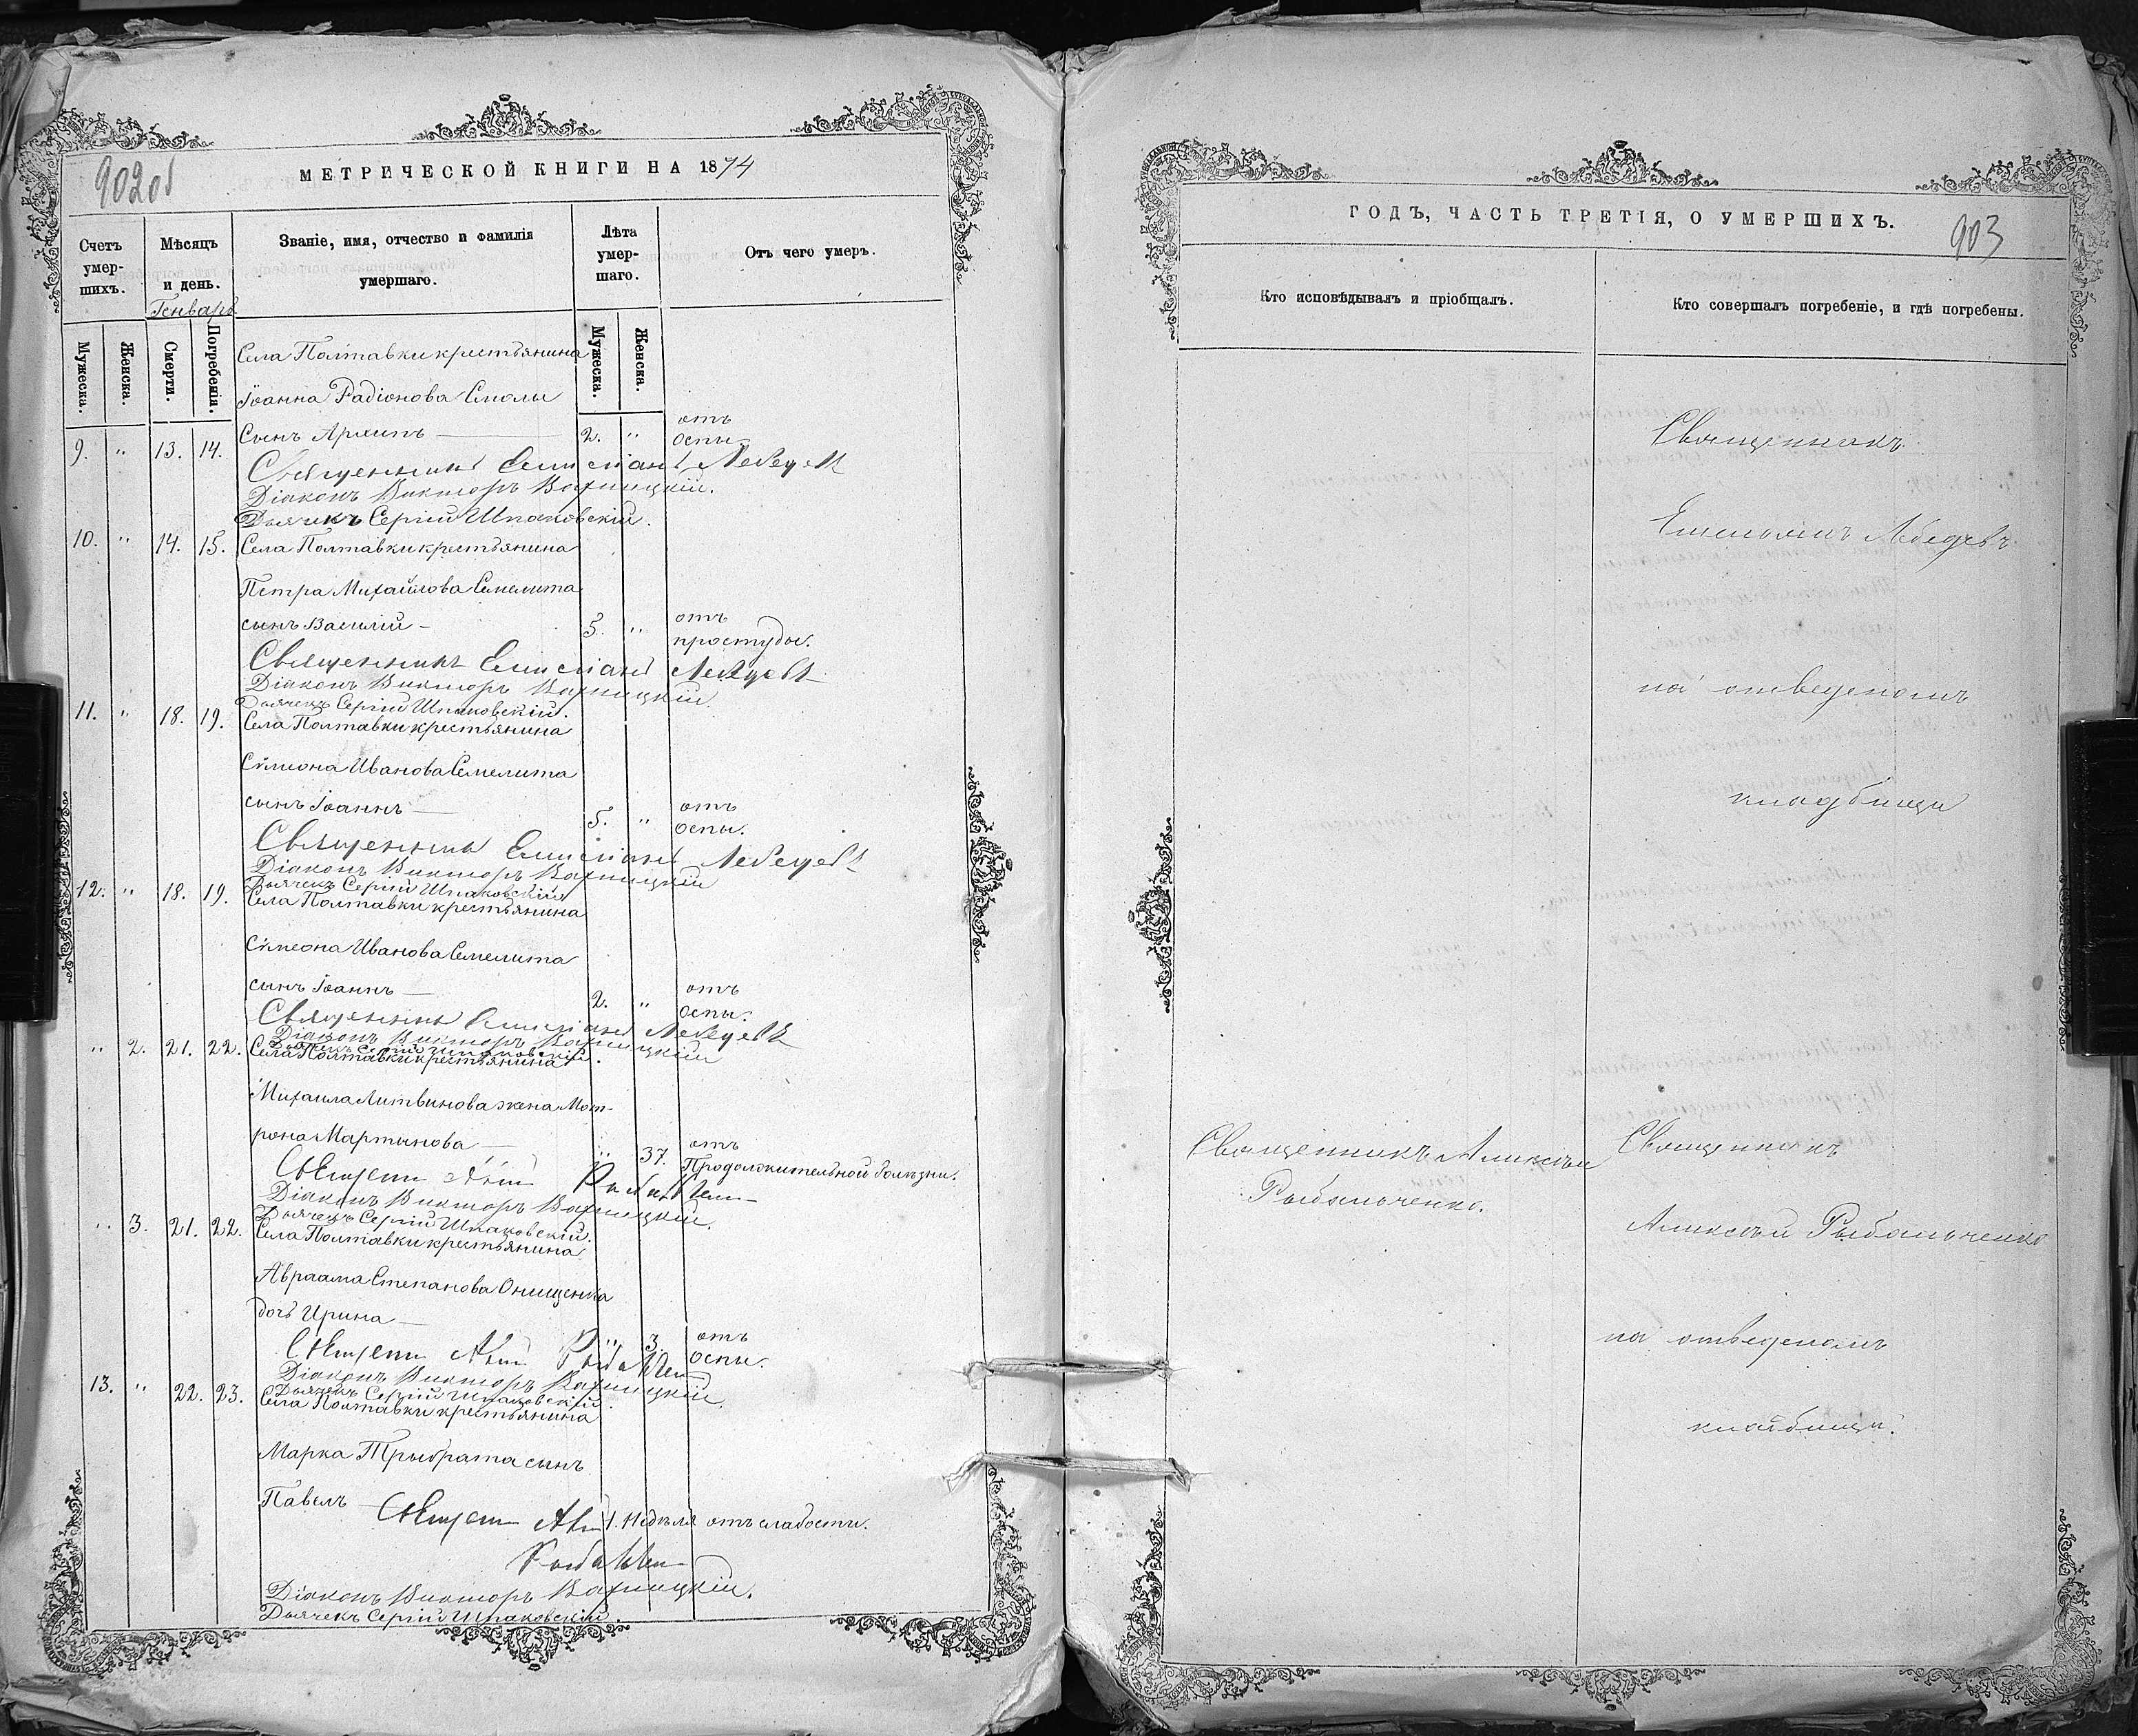 902об
МЕТРИЧЕСКОЙ КНИГИ НА 1874
Счетъ умер-шихъ.
Мѣсяцъ и день.
Генварь
Званіе, имя, отчество и фамилія умершаго.
Лѣта умер-шаго.
Отъ чего умеръ.
Мужеска.
Женска.
Смерти.
Погребенія.
Мужеска.
Женска.
Села Полтавки крестьянина
Іоанна Радіонова Смолы
9. " 13. 14. Сынъ Архипъ — 2. " отъ оспы.
Священникъ Емиліанъ Лебедевъ
Діаконъ Викторъ Вахницкій.
Дьячекъ Сергій Шпаковскій.
10. " 14. 15. Села Полтавки крестьянина
Петра Михайлова Семелита
сынъ Василій — 5. " отъ простуды.
Священникъ Емиліанъ Лебедевъ
Діаконъ Викторъ Вахницкій.
Дьячекъ Сергій Шпаковскій.
11. " 18. 19. Села Полтавки крестьянина
Сѵмеона Иванова Семелита
сынъ Іоаннъ — 5. " отъ оспы.
Священникъ Емиліанъ Лебедевъ
Діаконъ Викторъ Вахницкій
Дьячекъ Сергій Шпаковскій
12. " 18. 19. Села Полтавки крестьянина
Сѵмеона Иванова Семелита
сынъ Іоаннъ — 2. " отъ оспы.
Священникъ Емиліанъ Лебедевъ
Діаконъ Викторъ Вахницкій
Дьячекъ Сергій Шпаковскій.
" 2. 21. 22. Села Полтавки крестьянина
Михаила Литвинова жена Мот-
рона Мартынова — " 37. отъ Продолжительной болѣзни.
Діаконъ Викторъ Вахницкій.
Дьячекъ Сергій Шпаковскій.
" 3. 21. 22. Села Полтавки крестьянина
Авраама Степанова Онищенка
дочь Ирина — " 3. отъ оспы.
Діаконъ Викторъ Вахницкій
Дьячекъ Сергій Шпаковскій.
13. " 22. 23. Села Полтавки крестьянина
Марка Трыбрата сынъ
Павелъ — 1. недѣля отъ слабости.
Діаконъ Викторъ Вахницкій.
Дьячекъ Сергій Шпаковскій.
ГОДЪ, ЧАСТЬ ТРЕТІЯ, О УМЕРШИХЪ.
903
Кто исповѣдывалъ и пріобщалъ.
Кто совершалъ погребеніе, и гдѣ погребены.
Священникъ
Емельянъ Лебедевъ
на отведеномъ
кладбищи
Священникъ Алексѣй
Рыбальченко.
Священникъ
Алексѣй Рыбальченко
на отведеномъ
кладбищи.